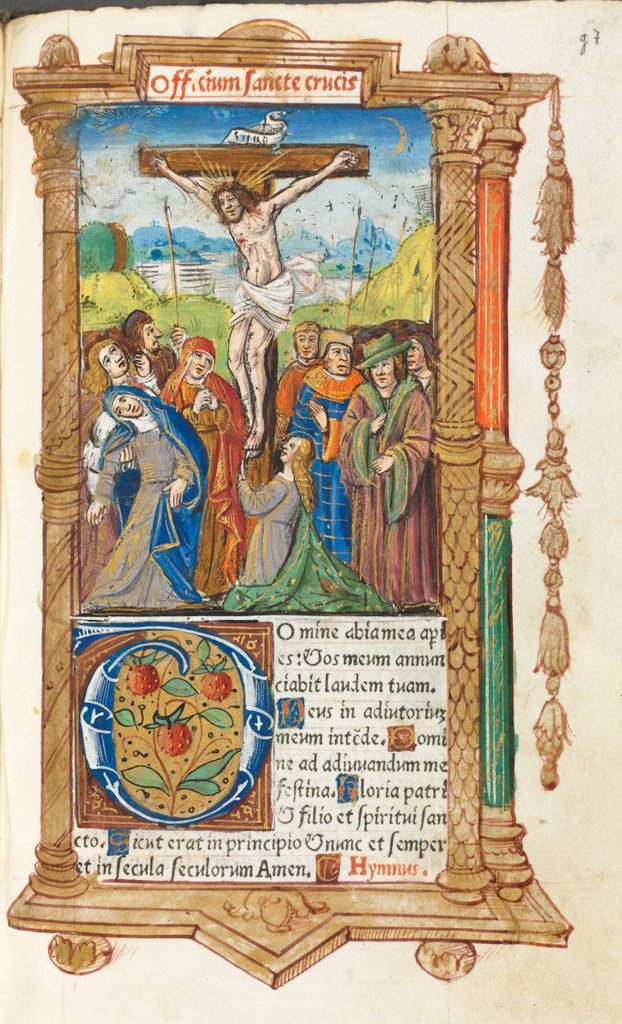 97
Officium sancte crucis
Omine abia mea api
es: Et os meum annun
ciabit laudem tuam.
Deus in adiutoriuz
meum intēde. Domi
ne ad adiuuandum me
festina. Gloria patri
Et filio et spiritui san
cto. Sicut erat in principio Et nunc et semper
et in secula seculorum Amen. Hymnus.